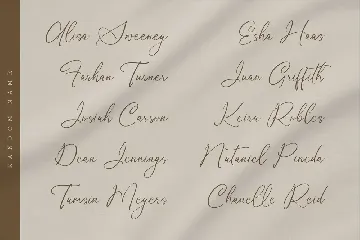 Alisa Sweeney
Esha Haas
Farhan Turner
Juan Griffith
Josiah Carson
Keira Robles
Dean Jennings
Nataniel Pineda
Tamsin Myers
Chanelle Reid
RANDOM NAME